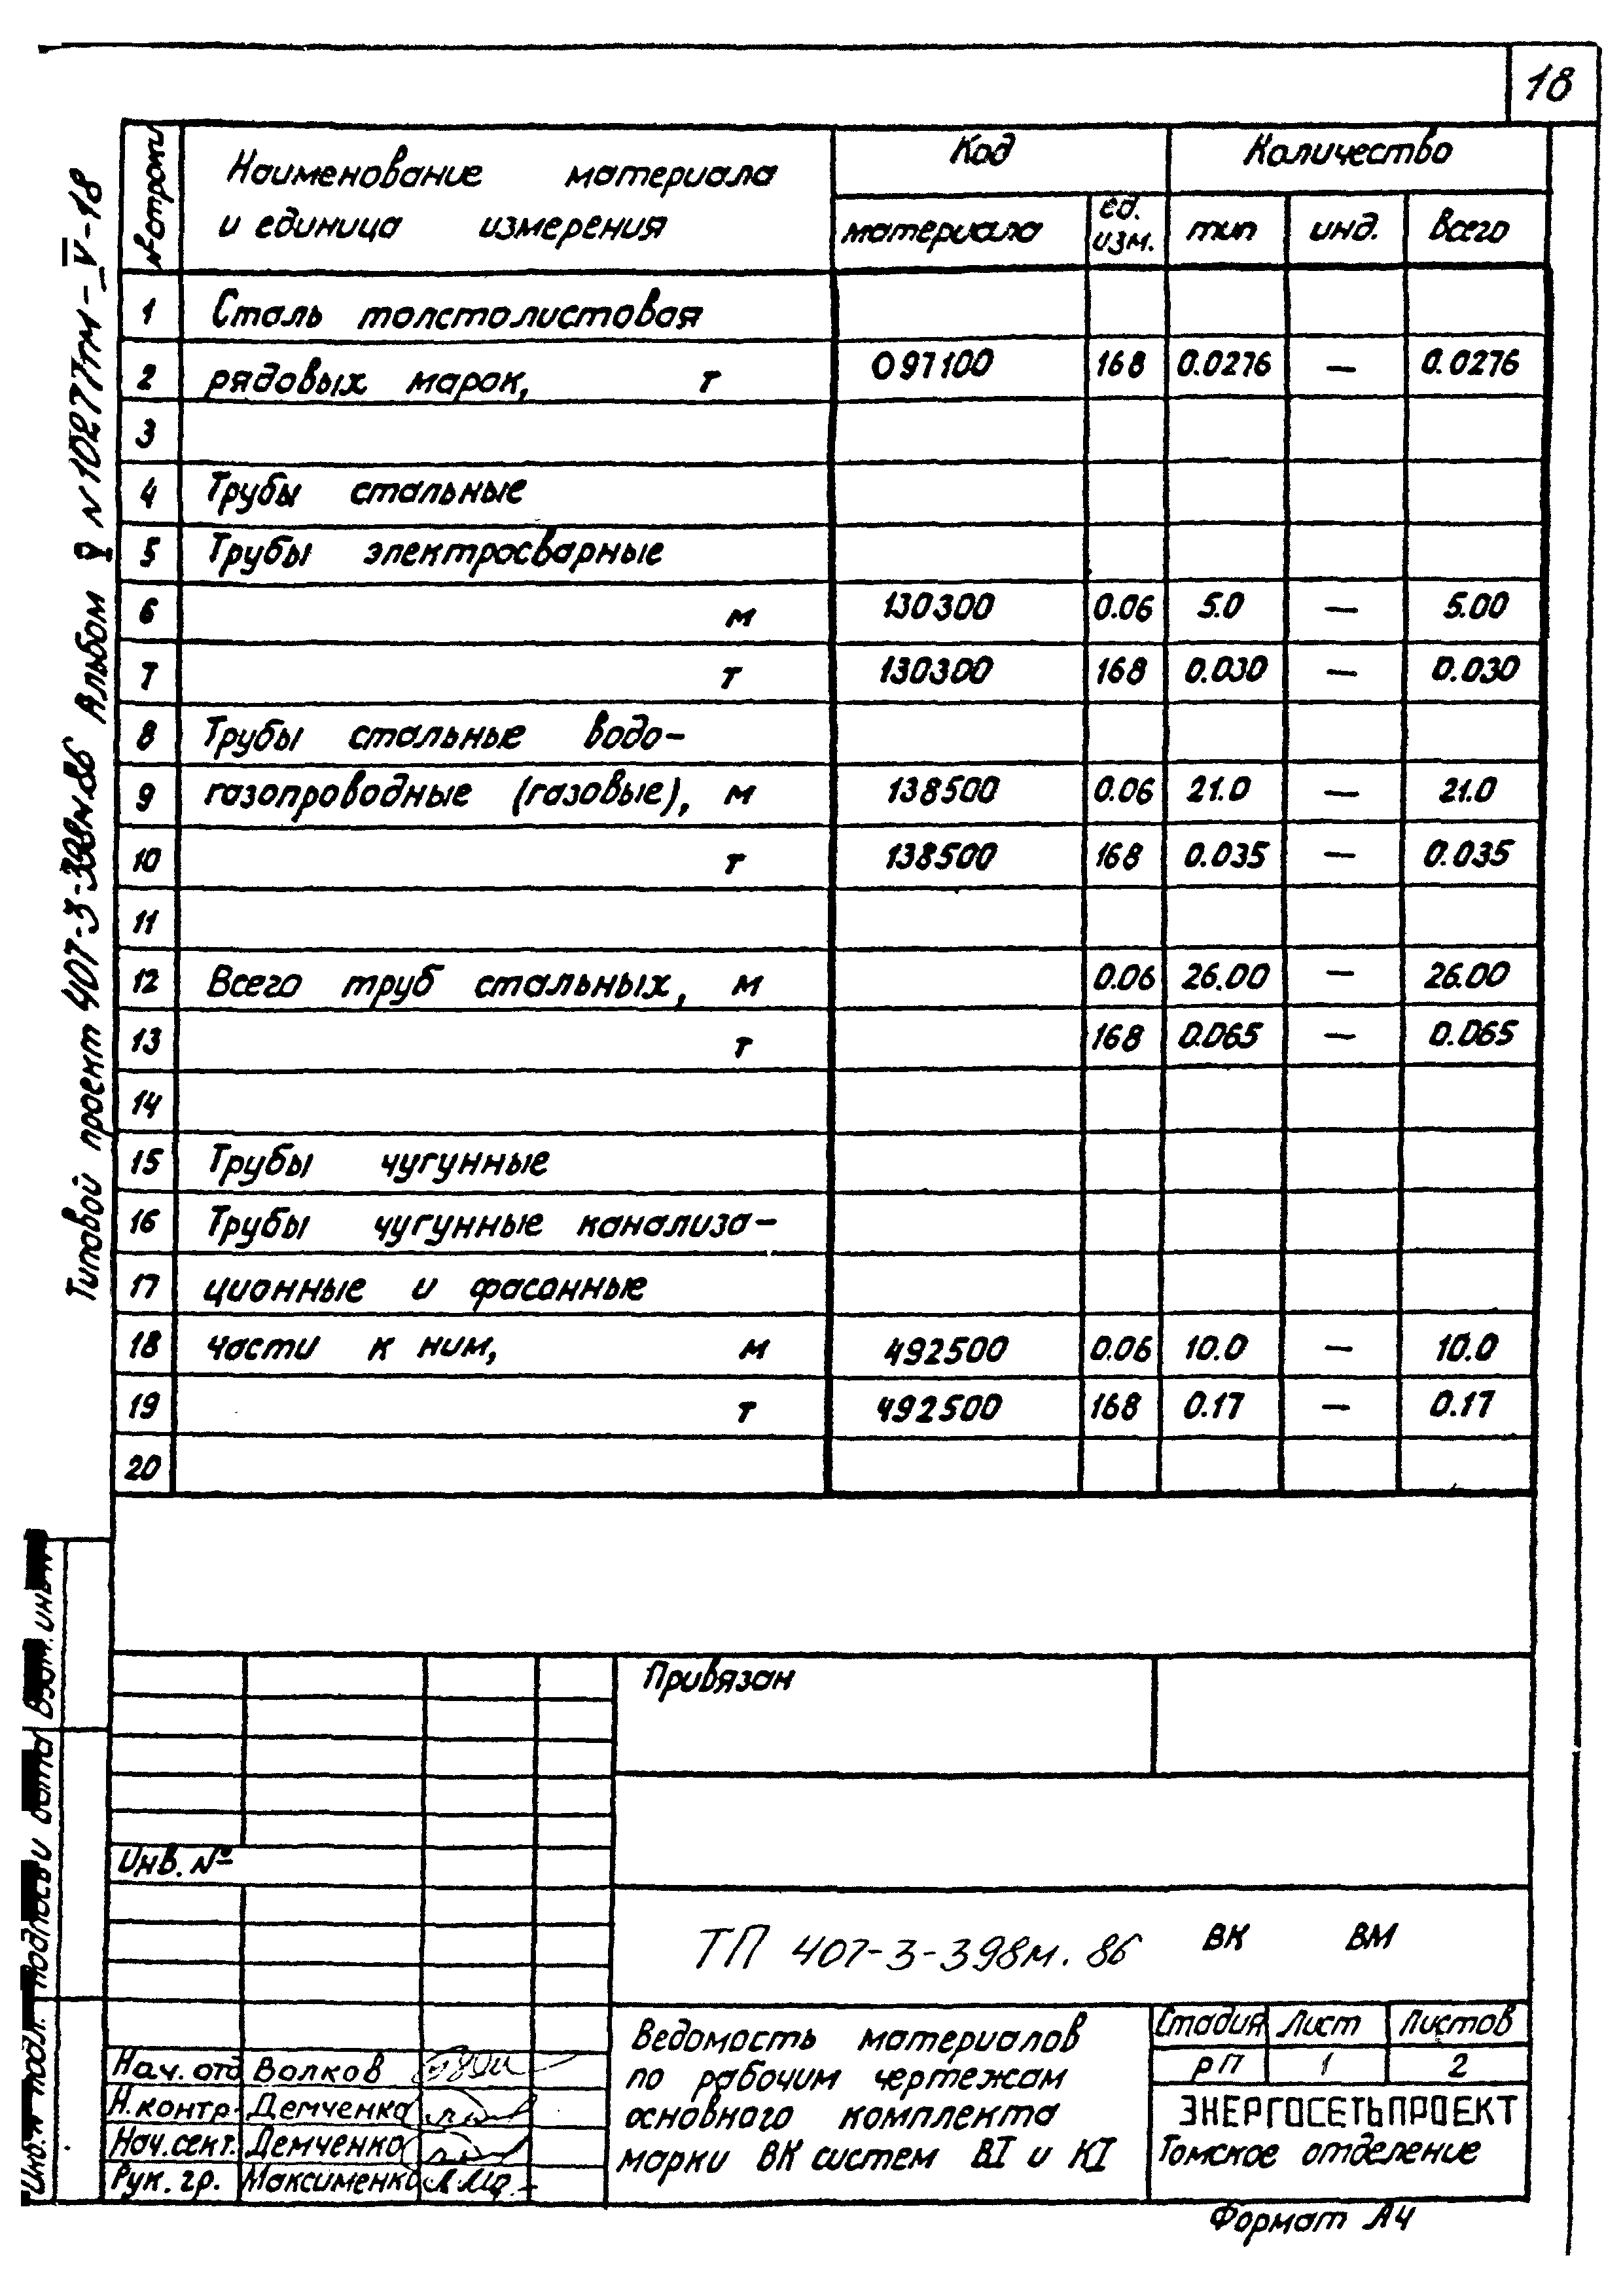 18
Типовой проект 407-3-398м.86 Альбом V N10277тм-V-18
№ строки
Наименование материала
и единица измерения
Код
Количество
материала
ед.
изм.
тип
инд.
всего
1 Сталь толстолистовая
2 рядовых марок, т 097100 168 0.0276 — 0.0276
3
4 Трубы стальные
5 Трубы электросварные
6 м 130300 0.06 5.0 — 5.00
7 т 130300 168 0.030 — 0.030
8 Трубы стальные водо-
9 газопроводные (газовые), м 138500 0.06 21.0 — 21.0
10 т 138500 168 0.035 — 0.035
11
12 Всего труб стальных, м 0.06 26.00 — 26.00
13 т 168 0.065 — 0.065
14
15 Трубы чугунные
16 Трубы чугунные канализа-
17 ционные и фасонные
18 части к ним, м 492500 0.06 10.0 — 10.0
19 т 492500 168 0.17 — 0.17
20
Привязан
Инв. №
ТП 407-3-398м.86 ВК ВМ
Ведомость материалов
по рабочим чертежам
основного комплекта
марки ВК систем ВI и КI
Стадия Лист Листов
РП 1 2
ЭНЕРГОСЕТЬПРОЕКТ
Томское отделение
Нач. отд Волков
Н.контр. Демченко
Нач.сект. Демченко
Рук. гр. Максименко
Инв.N подл. Подпись и дата Взам.инв N
Формат А4